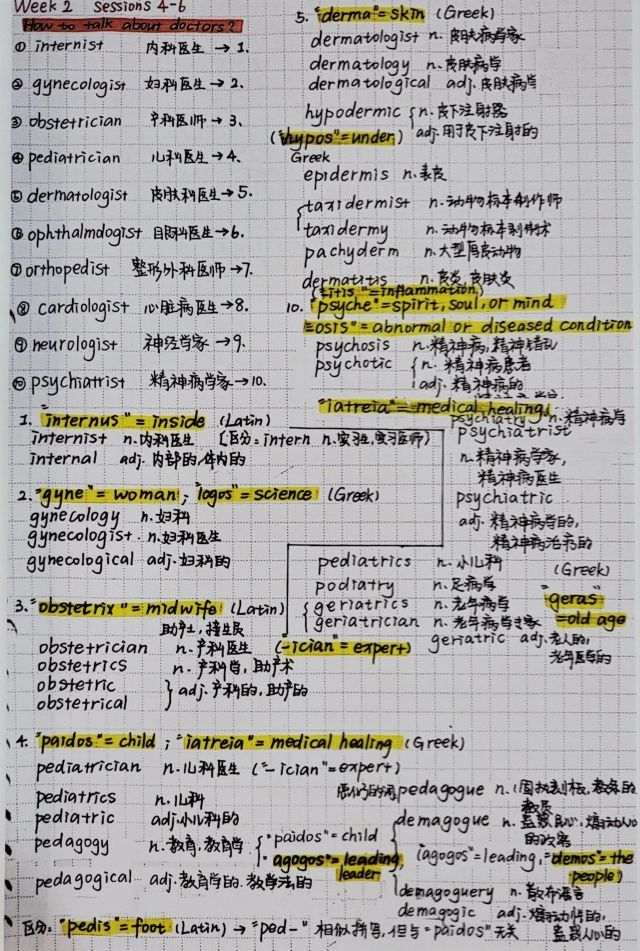 Week 2 Sessions 4-6
How to talk about doctors?
① internist 内科医生 → 1.
② gynecologist 妇科医生 → 2.
③ obstetrician 产科医师 → 3.
④ pediatrician 儿科医生 → 4.
⑤ dermatologist 皮肤科医生 → 5.
⑥ ophthalmologist 眼科医生 → 6.
⑦ orthopedist 整形外科医师 → 7.
⑧ cardiologist 心脏病医生 → 8.
⑨ neurologist 神经学家 → 9.
⑩ psychiatrist 精神病学家 → 10.
1. "internus" = inside (Latin)
internist n. 内科医生 [区分: intern n. 实习生, 实习医师)
internal adj. 内部的, 体内的
2. "gyne" = woman ; "logos" = science (Greek)
gynecology n. 妇科
gynecologist n. 妇科医生
gynecological adj. 妇科的
3. "obstetrix" = midwife (Latin)
助产士, 接生员
obstetrician n. 产科医生 (-ician" = expert)
obstetrics n. 产科学, 助产术
obstetric
obstetrical } adj. 产科的, 助产的
4. "paidos" = child ; "iatreia" = medical healing (Greek)
pediatrician n. 儿科医生 ("-ician" = expert)
pediatrics n. 儿科
pediatric adj. 小儿科的
pedagogy n. 教育, 教育学 { "paidos" = child
"agogos" = leading, leader
pedagogical adj. 教育学的, 教学法的
区分: "pedis" = foot (Latin) → "ped-" 相似拼写, 但与 "paidos" 无关
5. "derma" = skin (Greek)
dermatologist n. 皮肤病学家
dermatology n. 皮肤病学
dermatological adj. 皮肤病学
hypodermic { n. 皮下注射器
adj. 用于皮下注射的
("hypos" = under)
Greek
epidermis n. 表皮
{ taxidermist n. 动物标本制作师
taxidermy n. 动物标本剥制术
pachyderm n. 大型厚皮动物
dermatitis n. 皮炎, 皮肤炎
("itis" = inflammation)
10. "psyche" = spirit, soul, or mind
"osis" = abnormal or diseased condition
psychosis n. 精神病, 精神错乱
psychotic { n. 精神病患者
adj. 精神病的
"iatreia" = medical healing
psychiatry n. 精神病学
psychiatrist
n. 精神病学家,
精神病医生
psychiatric
adj. 精神病学的,
精神病治疗的
pediatrics n. 小儿科
podiatry n. 足病学
{ geriatrics n. 老年病学
geriatrician n. 老年病学专家
geriatric adj. 老人的,
老年医学的
(Greek)
"geras"
= old age
pedagogue n.
教员
demagogue n. 蛊惑民心, 煽动人心
的政客
("agogos" = leading, "demos" = the
people)
demagoguery n. 散布谣言
demagogic adj. 煽动性的,
蛊惑人心的